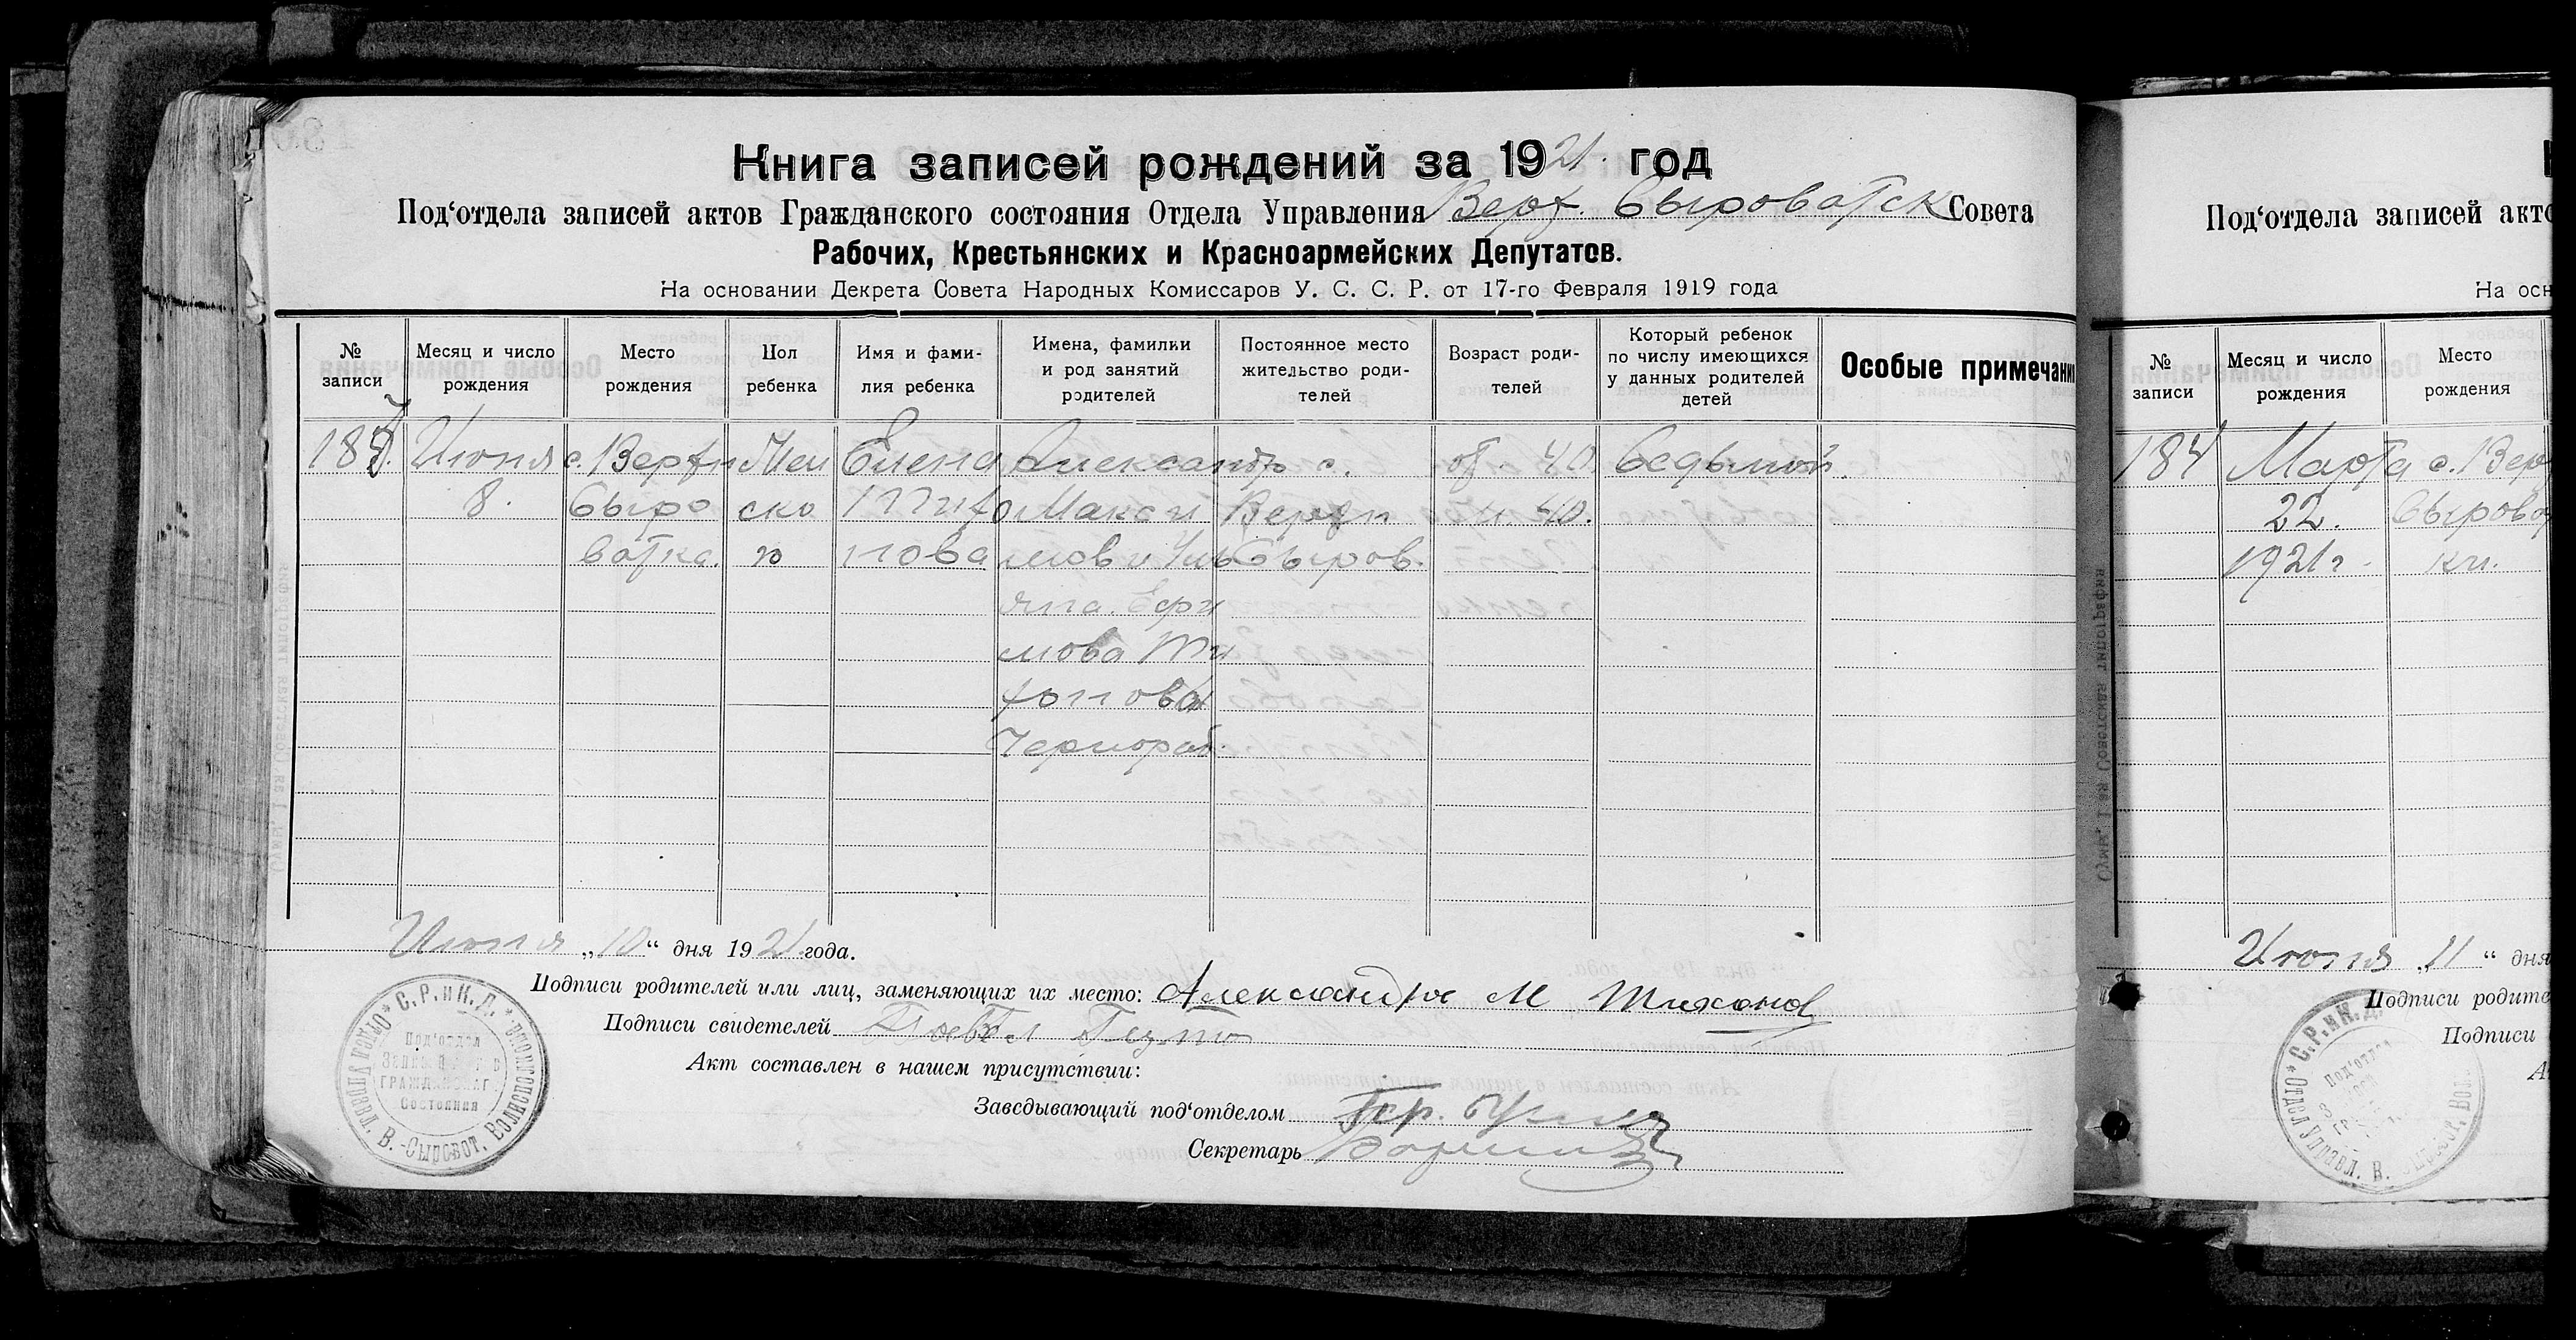 Книга записей рождений за 1921. год
Под‘отдела записей актов Гражданского состояния Отдела Управления Верх. Сыроватск Совета
Рабочих, Крестьянских и Красноармейских Депутатов.
На основании Декрета Совета Народных Комиссаров У. С. С. Р. от 17-го Февраля 1919 года
№ записи
Месяц и число рождения
Место рождения
Пол ребенка
Имя и фами-
лия ребенка
Имена, фамилии
и род занятий
родителей
Постоянное место
жительство роди-
телей
Возраст роди-
телей
Который ребенок
по числу имеющихся
у данных родителей
детей
Особые примечани
Июня
8.
с. Верхн
Сыро
ватка.
Жен
ско
го
Елена
Тихо
нова
Александр
Макси
мов и Уль
яна Ефи
мова Ти
хонова
Чернораб.
с.
Верхн
Сыров.
от. 40.
м. 40.
Седьмой.
Июня „10“ дня 1921 года.
Подписи родителей или лиц, заменяющих их место: Александр М Тихонов
Подписи свидетелей Павел
Акт составлен в нашем присутствии:
Заведывающий под‘отделом
Секретарь
С. Р. и К. Д. * Отдел Управл. В.-Сыроват. Волисполком. *
Под‘отдел
Записи актов
ГРАЖДАНСКАГО
Состояния
Под‘отдела записей акто
На осн
№ записи
Месяц и число рождения
Место рождения
184
Марта
22.
1921г.
с. Верх
Сыроват
ки.
Июня „11“ дня
Подписи родите
Подписи
А
С. Р. и К. Д. * Отдел Управл. В.
Под‘отдел